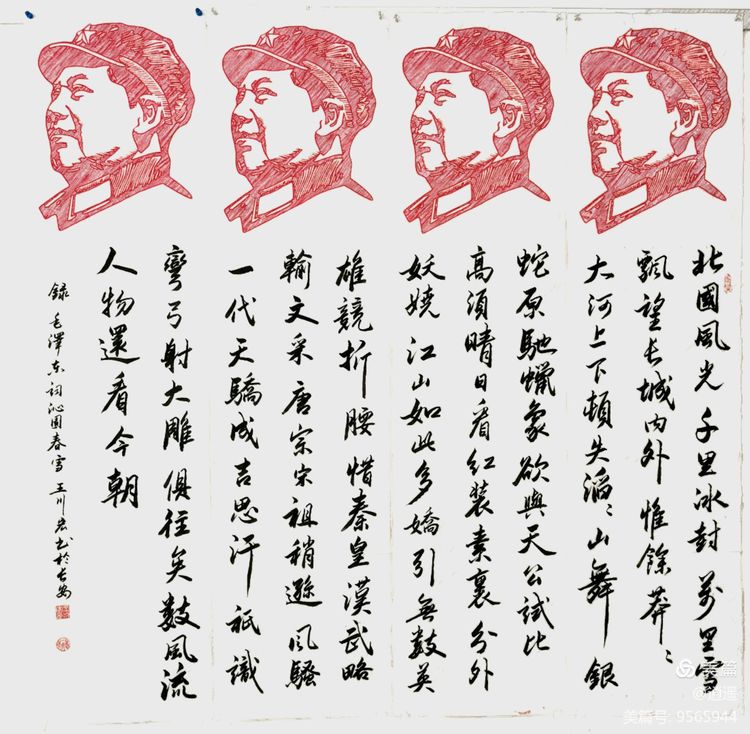 北國風光千里冰封萬里雪
飄望長城內外惟餘莽〻
大河上下頓失滔〻山舞銀
蛇原馳蠟象欲與天公試比
高須晴日看紅裝素裹分外
妖嬈江山如此多嬌引無數英
雄競折腰惜秦皇漢武略
輸文采唐宗宋祖稍遜風騷
一代天驕成吉思汗祇識
彎弓射大雕俱往矣數風流
人物還看今朝
錄毛澤東詞沁園春雪 王川宏書於長安
美篇
美篇号 9565944